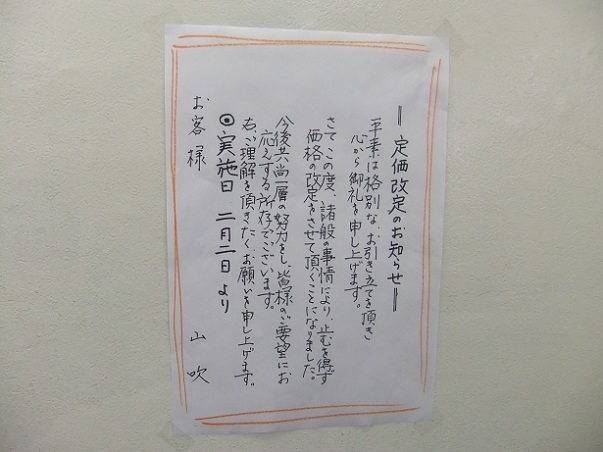 定価改定のお知らせ
平素は格別な、お引き立てを頂き
心から御礼を申し上げます。
さて この度、諸般の事情により、止むを得ず
価格の改定をさせて頂くことになりました。
今後共尚一層の努力をし、皆様のご要望にお
応えする所存でございます。
右、ご理解を頂きたく、お願いを申し上げます。
◎実施日 二月二日より
お客様 山吹